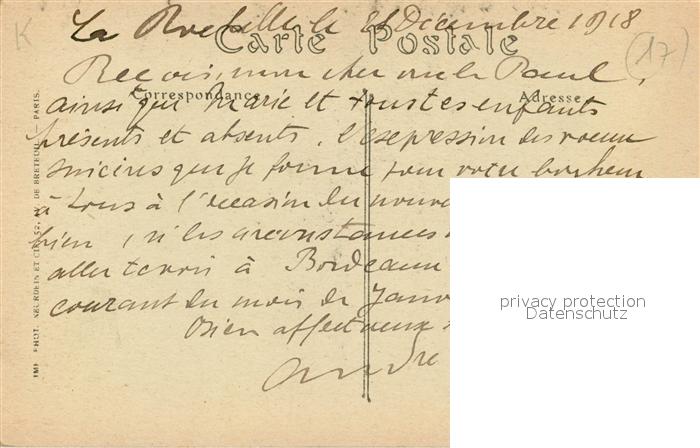 La Rochelle le 21 Décembre 1918
Carte Postale
K
(17)
Reçois, mon cher oncle Paul,
Correspondance
Adresse
ainsi que Marie et tous tes enfants
présents et absents, l'expression des voeux
sincères que je forme pour votre bonheur
à tous à l'occasion du nouve
bien, si les circonstances
aller te voir à Bordeaux
courant du mois de Janv
Bien affectueux
André
IMP. PHOT. NEURDEIN ET CIE, 52, AV. DE BRETEUIL — PARIS.
privacy protection
Datenschutz